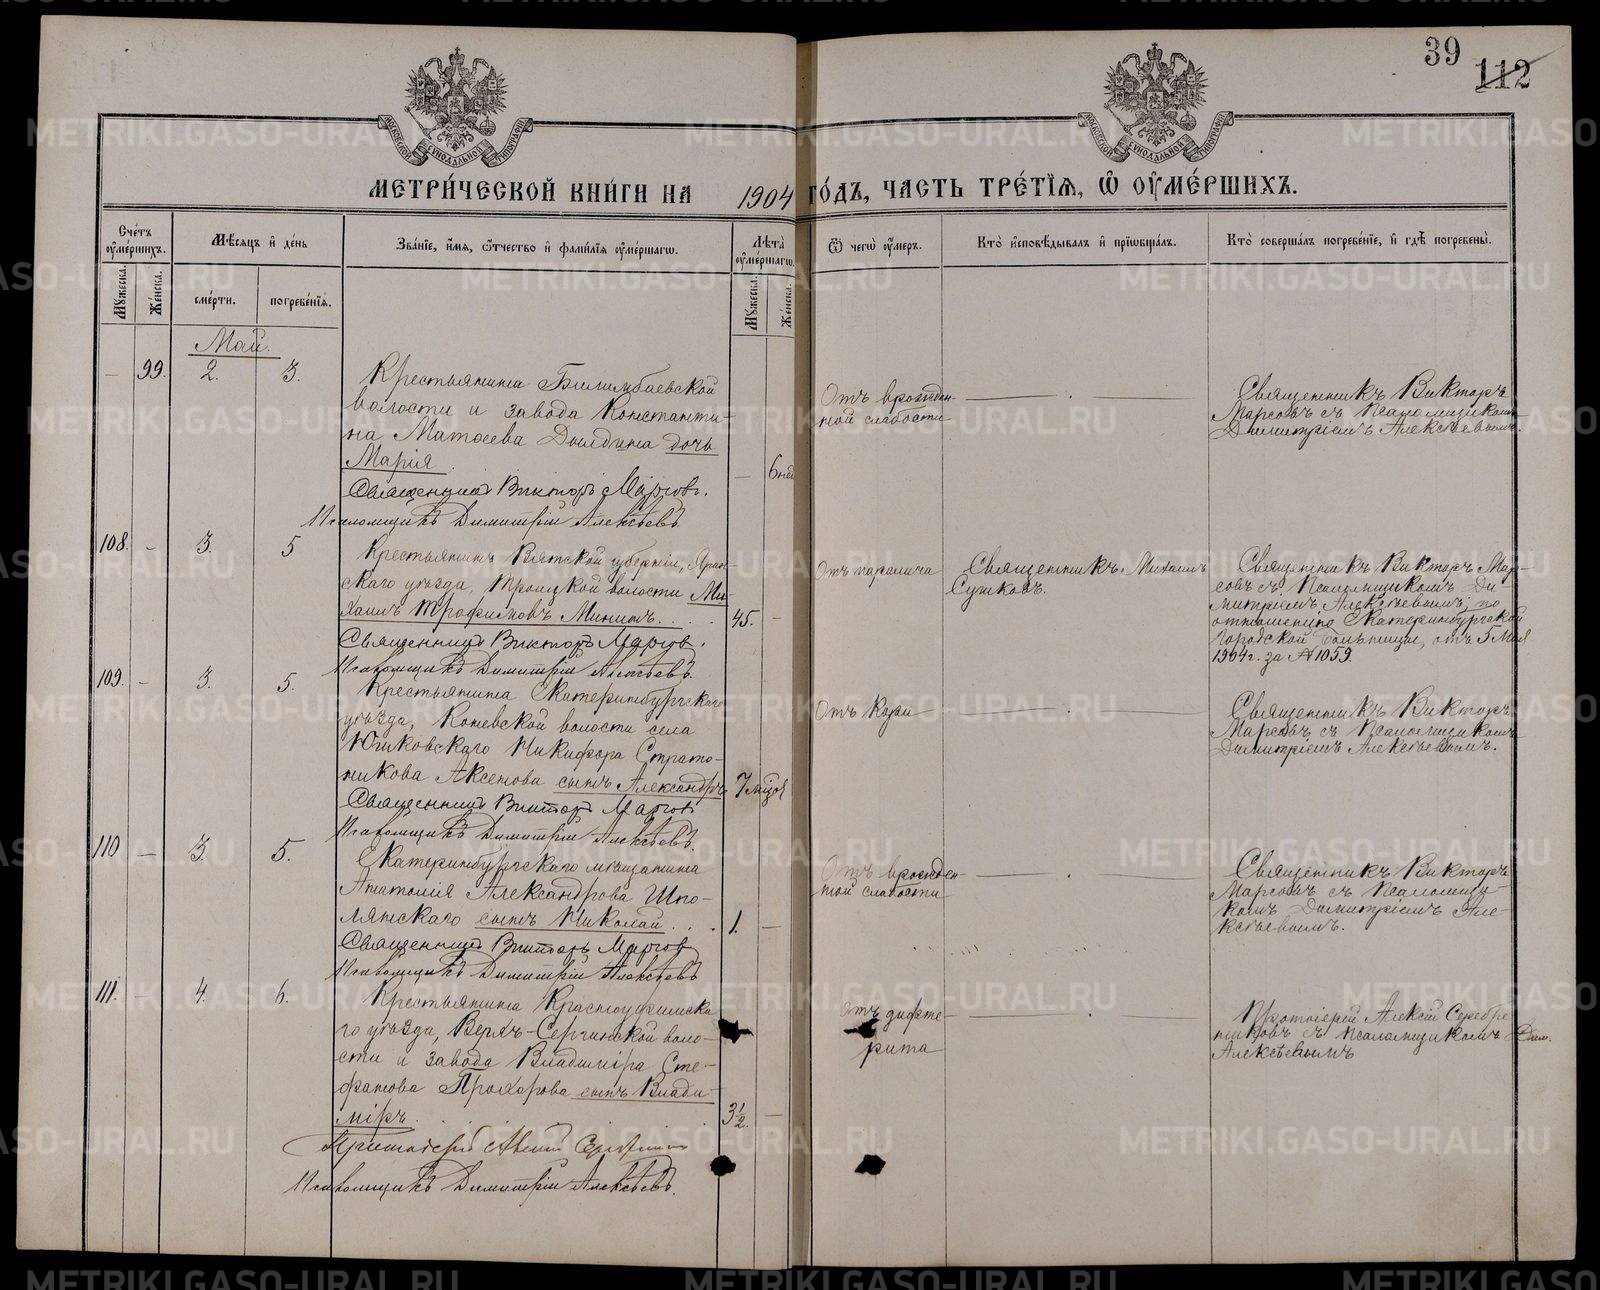 39
112
МОСКОВСКОЙ СѴНОДАЛЬНОЙ ТИПОГРАФІИ
МОСКОВСКОЙ СѴНОДАЛЬНОЙ ТИПОГРАФІИ
МЕТРИ́ЧЕСКОЙ КНИ́ГИ НА 1904 ГО́ДЪ, ЧАСТЬ ТРЕ́ТІѦ, Ѽ ОУМЕ́РШИХЪ.
Сче́тъ оумéршихъ.
Мꙋ́жеска.
Же́нска.
Мѣ́сяцъ и де́нь
сме́рти.
погребе́нїѧ.
Зва́нїе, и́мѧ, ѻ́тчество и фами́лїѧ оуме́ршагѡ.
Лѣ́та оуме́ршагѡ.
Мꙋ́жеска.
Же́нска.
Ѿ чегѡ̀ оу́меръ.
Кто̀ исповѣ́дывалъ и прїѡбща́лъ.
Кто̀ соверша́лъ погребе́нїе, и гдѣ̀ погребены̀.
Май.
— 99. 2. 3.
Крестьянина Билимбаевской
волости и завода Константи-
на Матѳеева Дылдина дочь
Марія.
— 6 нед
Священникъ Викторъ Марсовъ.
Псаломщикъ Димитрій Алексѣевъ.
Отъ врожден-
ной слабости
Священникъ Викторъ
Марсовъ съ псаломщикомъ
Димитріемъ Алексѣевымъ.
108. — 3. 5
Крестьянинъ Вятской губерніи, Яран-
скаго уѣзда, Троицкой волости Ми-
хаилъ Трофимовъ Мининъ.
45. —
Священникъ Викторъ Марсовъ.
Псаломщикъ Димитрій Алексѣевъ.
Отъ паралича
Священникъ Михаилъ
Сушковъ.
Священникъ Викторъ Мар-
совъ съ псаломщикомъ Ди
митріемъ Алексѣевымъ; по
отношенію Екатеринбургской
городской больницы, отъ 5 Мая
1904 г. за № 1059.
109. — 3. 5.
Крестьянина Екатеринбургскаго
уѣзда, Коневской волости села
Юшковскаго Никифора Страто-
никова Аксенова сынъ Александръ
7 мѣся
Священникъ Викторъ Марсовъ
Псаломщикъ Димитрій Алексѣевъ.
Отъ кори
Священникъ Викторъ
Марсовъ съ псаломщикомъ
Димитріемъ Алексѣевымъ.
110 — 3. 5.
Екатеринбургскаго мѣщанина
Анатолія Александрова Шпо-
лянскаго сынъ Николай.
1. —
Священникъ Викторъ Марсовъ
Псаломщикъ Димитрій Алексѣевъ
Отъ врожден
ной слабости
Священникъ Викторъ
Марсовъ съ псаломщи-
комъ Димитріемъ Але-
ксѣевымъ.
111. — 4. 6.
Крестьянина Красноуфимска
го уѣзда, Верхъ-Сергинской воло-
сти и завода Владиміра Сте-
фанова Прохорова сынъ Влади-
міръ.
3½. —
Псаломщикъ Димитрій Алексѣевъ.
Отъ дифте-
рита
Протоіерей Алексій Серебре
никовъ съ псаломщикомъ Дим.
Алексѣевымъ
METRIKI.GASO-URAL.RU